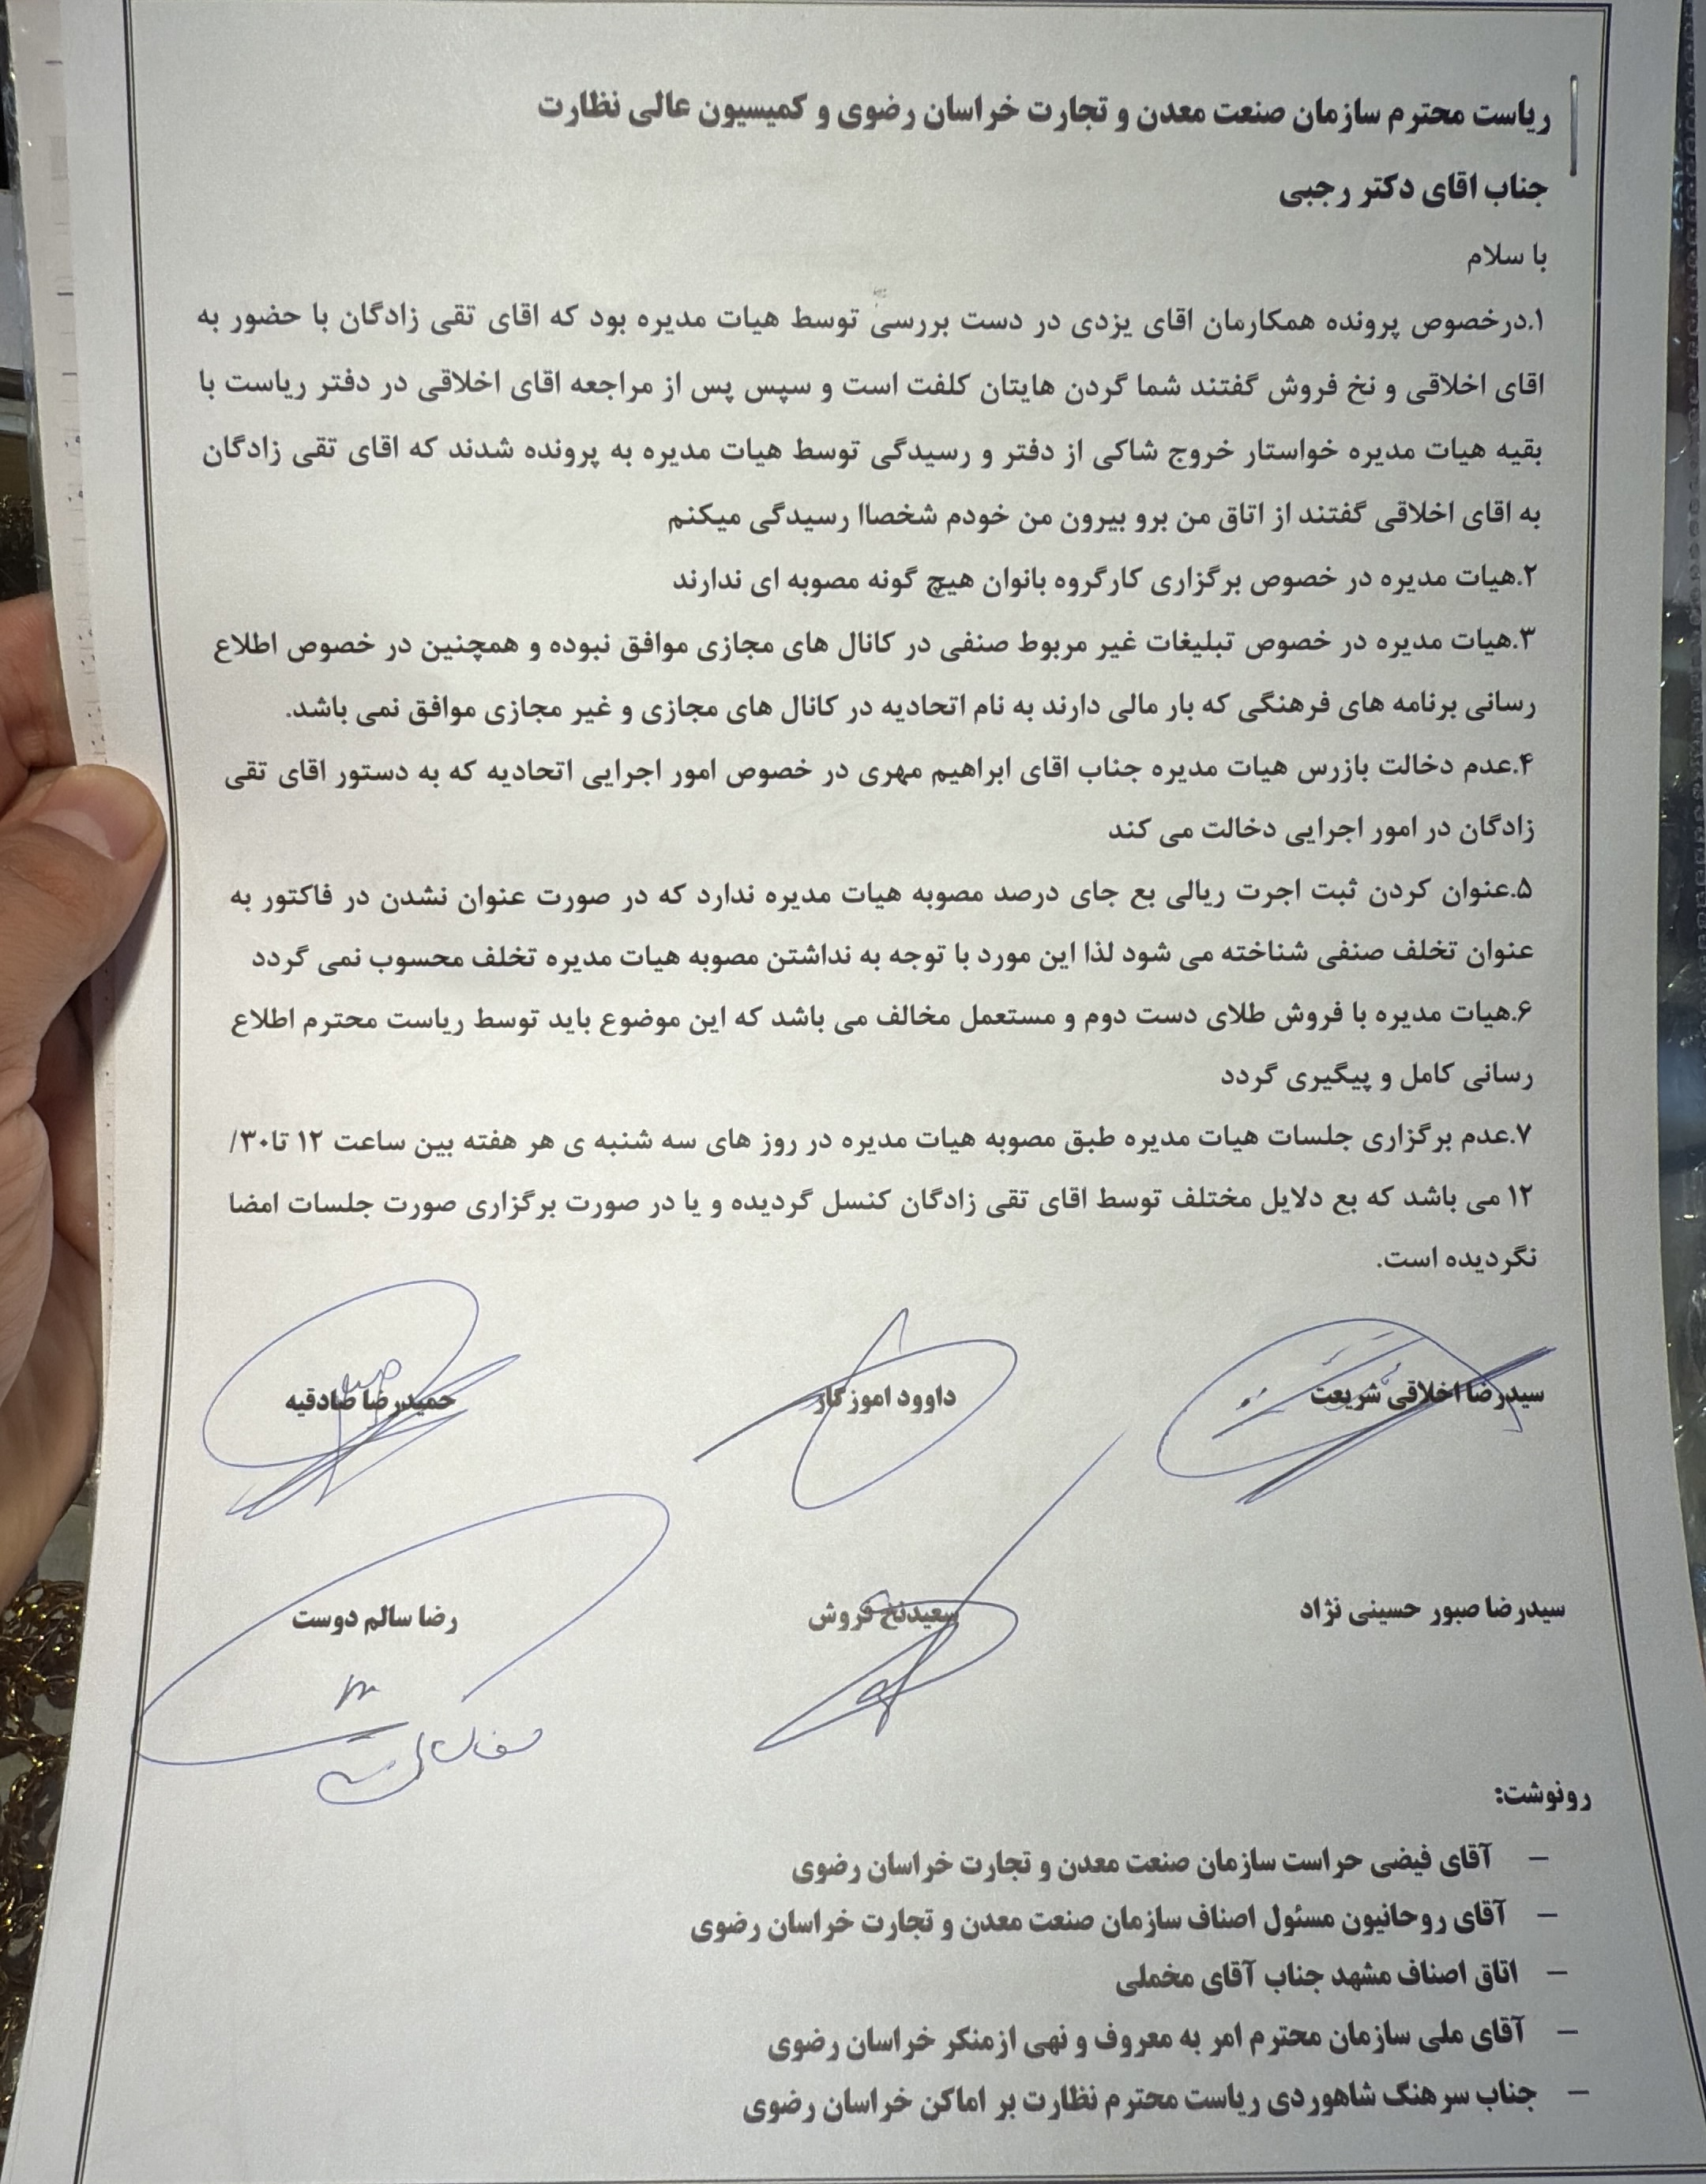 ریاست محترم سازمان صنعت معدن و تجارت خراسان رضوی و کمیسیون عالی نظارت
جناب اقای دکتر رجبی
با سلام
۱.درخصوص پرونده همکارمان اقای یزدی در دست بررسی توسط هیات مدیره بود که اقای تقی زادگان با حضور به
اقای اخلاقی و نخ فروش گفتند شما گردن هایتان کلفت است و سپس پس از مراجعه اقای اخلاقی در دفتر ریاست با
بقیه هیات مدیره خواستار خروج شاکی از دفتر و رسیدگی توسط هیات مدیره به پرونده شدند که اقای تقی زادگان
به اقای اخلاقی گفتند از اتاق من برو بیرون من خودم شخصاا رسیدگی میکنم
۲.هیات مدیره در خصوص برگزاری کارگروه بانوان هیچ گونه مصوبه ای ندارند
۳.هیات مدیره در خصوص تبلیغات غیر مربوط صنفی در کانال های مجازی موافق نبوده و همچنین در خصوص اطلاع
رسانی برنامه های فرهنگی که بار مالی دارند به نام اتحادیه در کانال های مجازی و غیر مجازی موافق نمی باشد.
۴.عدم دخالت بازرس هیات مدیره جناب اقای ابراهیم مهری در خصوص امور اجرایی اتحادیه که به دستور اقای تقی
زادگان در امور اجرایی دخالت می کند
۵.عنوان کردن ثبت اجرت ریالی بع جای درصد مصوبه هیات مدیره ندارد که در صورت عنوان نشدن در فاکتور به
عنوان تخلف صنفی شناخته می شود لذا این مورد با توجه به نداشتن مصوبه هیات مدیره تخلف محسوب نمی گردد
۶.هیات مدیره با فروش طلای دست دوم و مستعمل مخالف می باشد که این موضوع باید توسط ریاست محترم اطلاع
رسانی کامل و پیگیری گردد
۷.عدم برگزاری جلسات هیات مدیره طبق مصوبه هیات مدیره در روز های سه شنبه ی هر هفته بین ساعت ۱۲ تا۳۰/
۱۲ می باشد که بع دلایل مختلف توسط اقای تقی زادگان کنسل گردیده و یا در صورت برگزاری صورت جلسات امضا
نگردیده است.
سیدرضا اخلاقی شریعت داوود اموزگار حمیدرضا صادقیه
سیدرضا صبور حسینی نژاد سعیدنخ فروش رضا سالم دوست
رونوشت:
– آقای فیضی حراست سازمان صنعت معدن و تجارت خراسان رضوی
– آقای روحانیون مسئول اصناف سازمان صنعت معدن و تجارت خراسان رضوی
– اتاق اصناف مشهد جناب آقای مخملی
– آقای ملی سازمان محترم امر به معروف و نهی ازمنکر خراسان رضوی
– جناب سرهنگ شاهوردی ریاست محترم نظارت بر اماکن خراسان رضوی